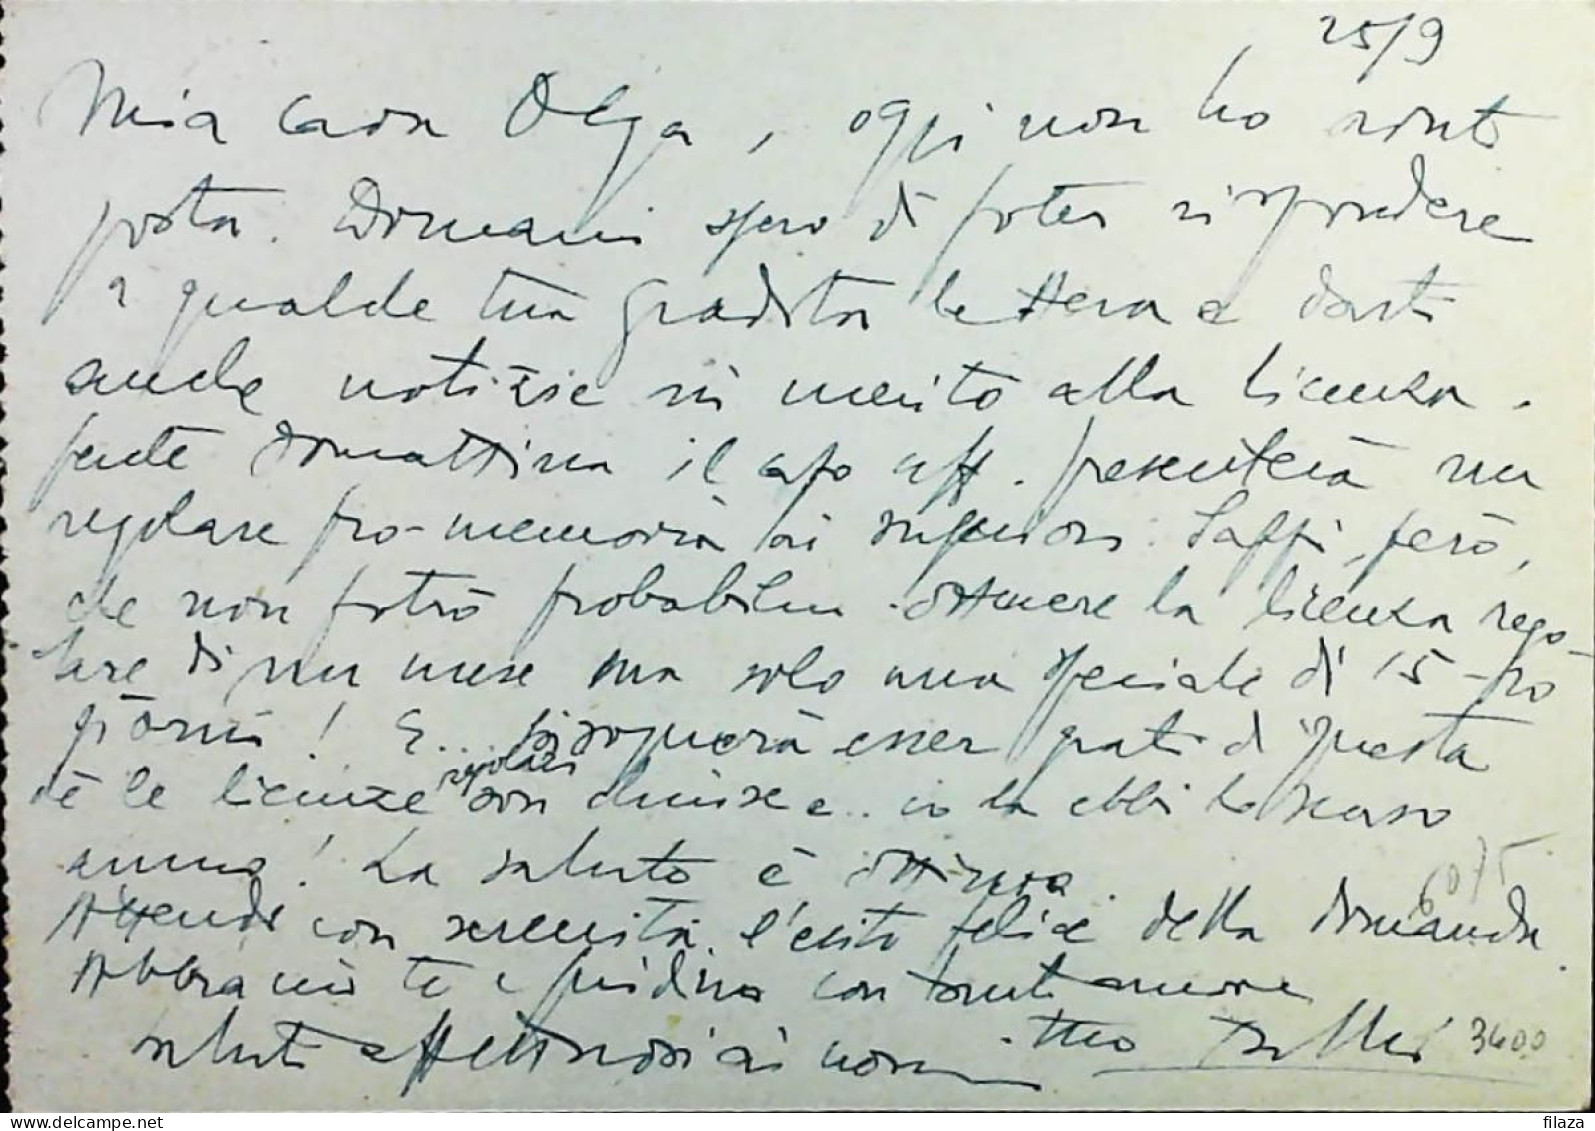 25/9
Mia cara Olga, oggi non ho avuto
posta. Domani spero di poter rispondere
a qualche tua gradita lettera e darti
anche notizie in merito alla licenza.
domattina il capo uff. presenterà un
regolare pro-memoria ai superiori. Sappi, però,
che non potrò probabilm. ottenere la licenza rego-
lare di un mese ma solo una speciale di 15
giorni! E... bisognerà esser grati di questa
chè le licenze regolari son chiuse e.. io la ebbi lo scorso
anno! La salute è ottima.
Attendi con serenità l'esito felice della domanda.
Abbraccio te e con tanto amore
saluti affettuosi ai
6075
3400
filaza